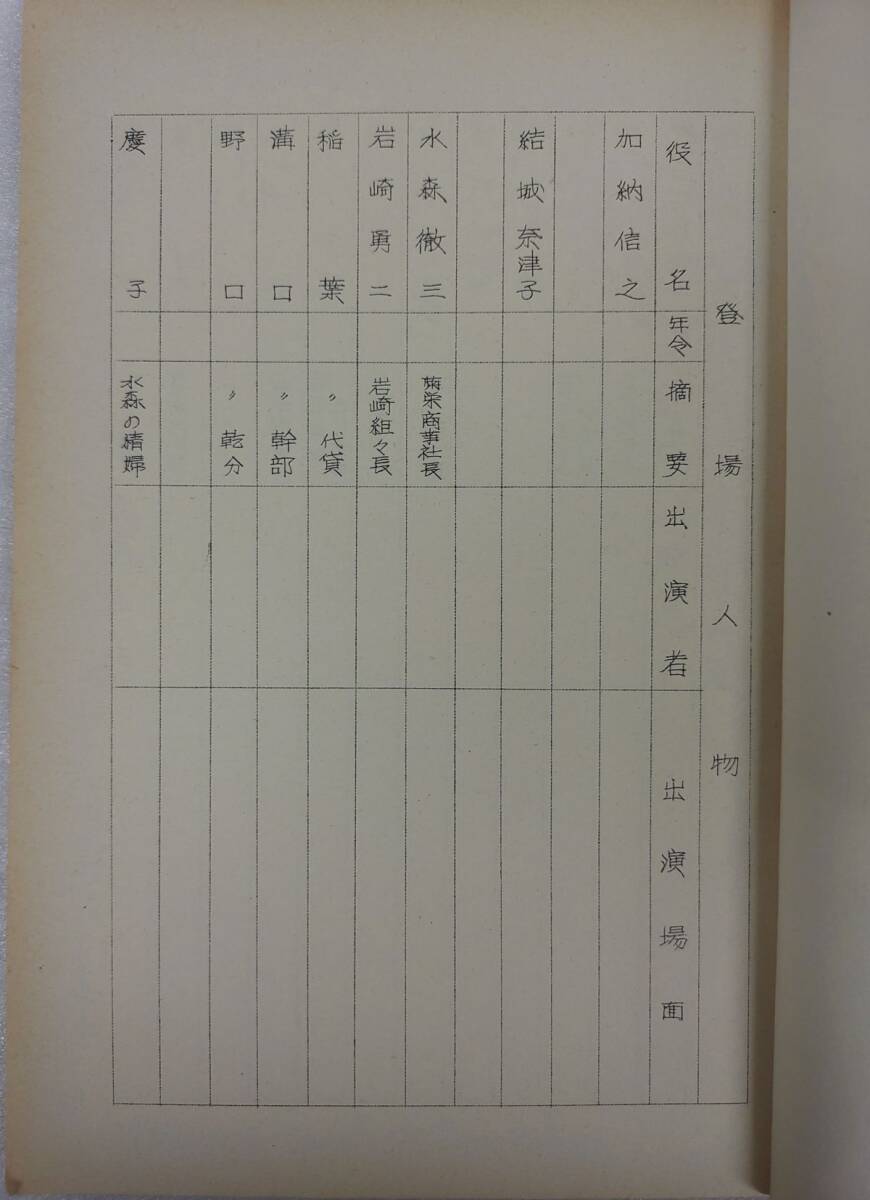 登場人物
役名 年令 摘要 出演者 出演場面
加納信之
結城奈津子
水森徹三 菊栄商事社長
岩崎勇二 岩崎組々長
稲葉 〃 代貸
溝口 〃 幹部
野口 〃 乾分
慶子 水森の情婦